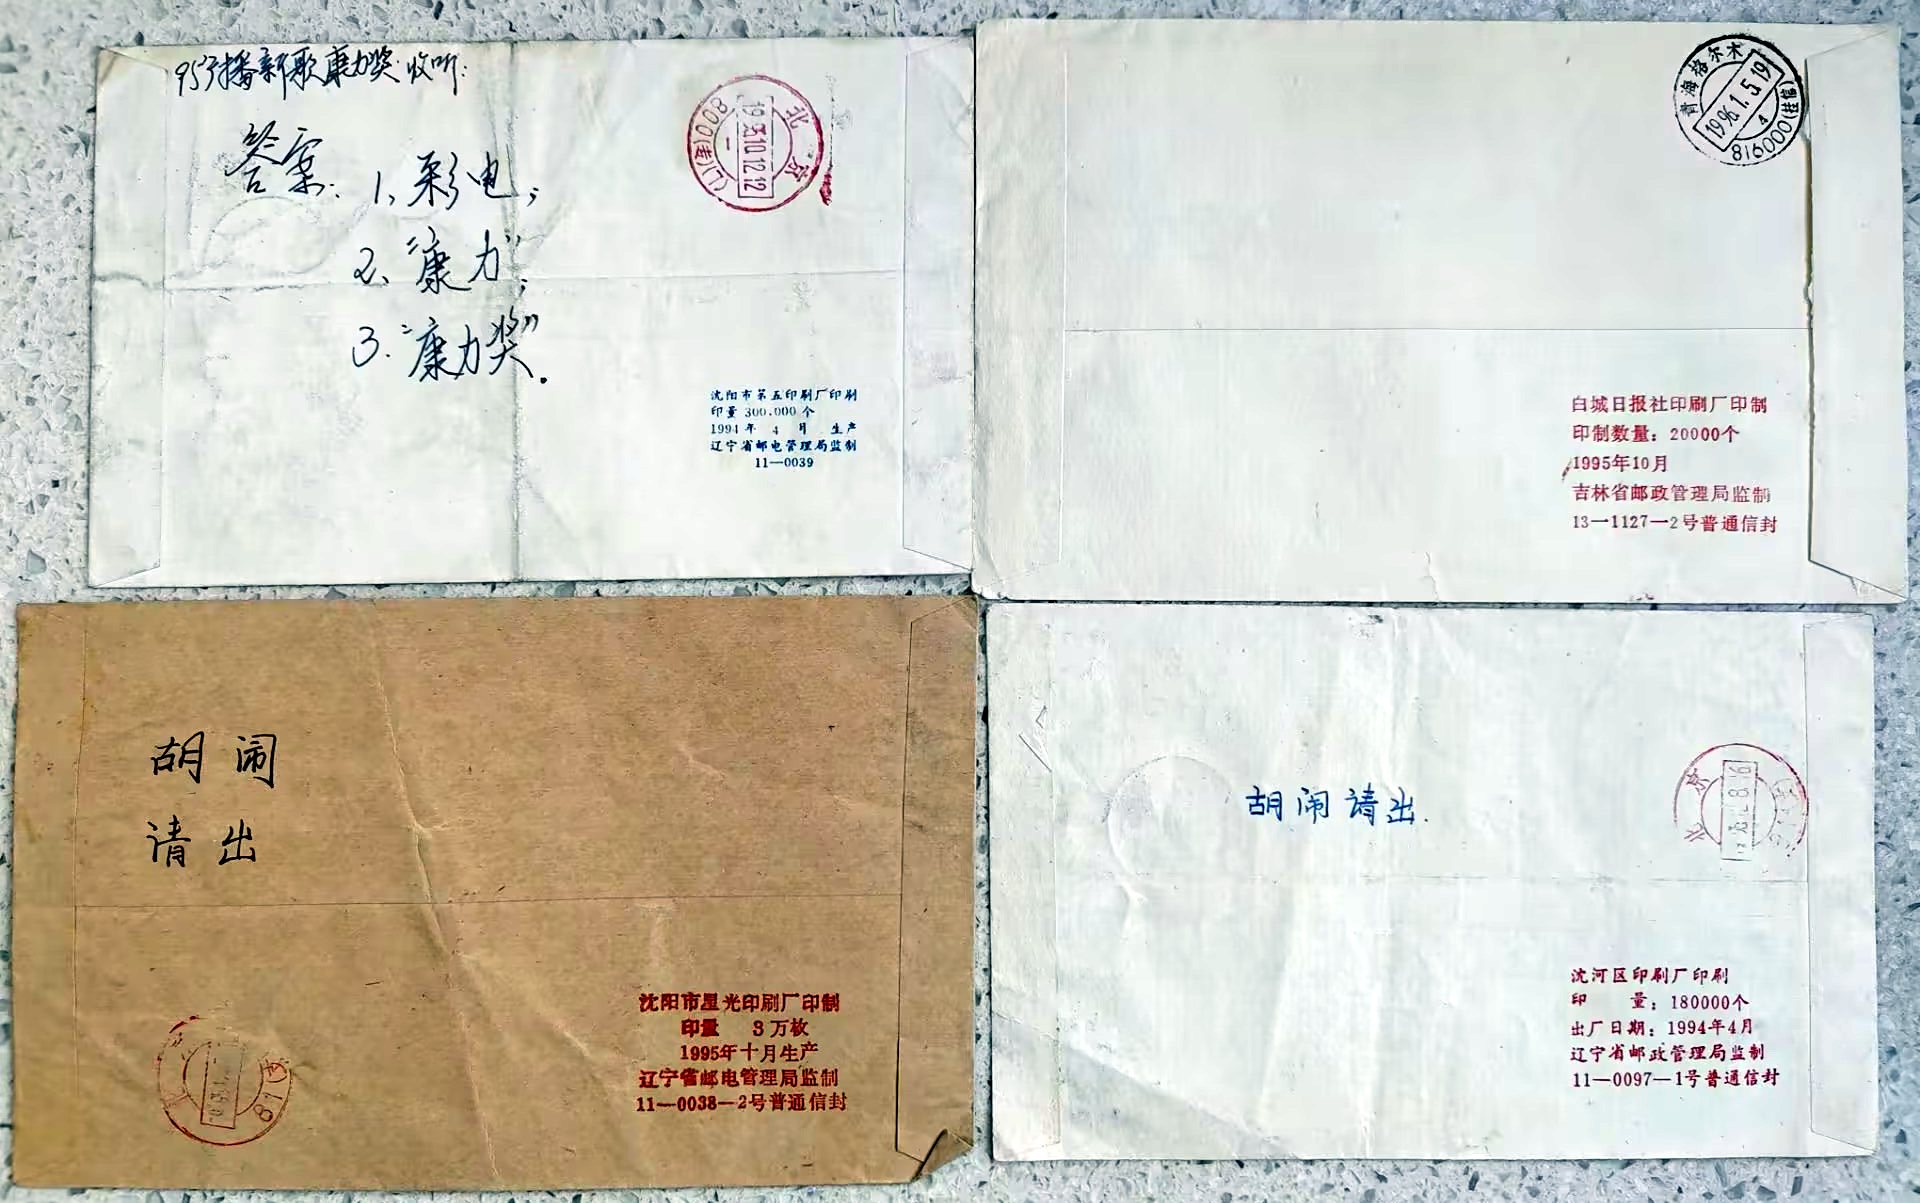 95'播新歌康力奖收听:
答案: 1、彩电;
2、"康力";
3."康力奖".
北京
1995.10.12.12
沈阳市第五印刷厂印刷
印量 300,000 个
1994年 4 月 生产
辽宁省邮电管理局监制
11—0039
青海格尔木
1996.1.5.19
4
816000
白城日报社印刷厂印制
印制数量: 20000个
1995年10月
吉林省邮政管理局监制
13—1127—2号普通信封
胡闹
请出
沈阳市星光印刷厂印制
印量 3万枚
1995年十月生产
辽宁省邮电管理局监制
11—0038—2号普通信封
胡闹请出.
北京
沈河区印刷厂印刷
印 量: 180000个
出厂日期: 1994年4月
辽宁省邮政管理局监制
11—0097—1号普通信封